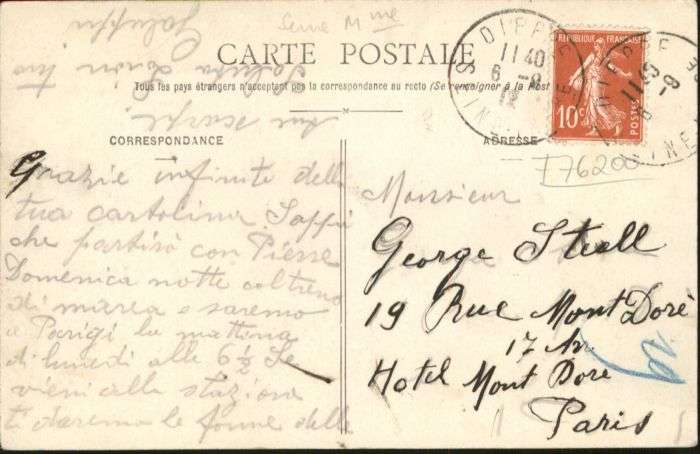 Seine Mme
CARTE POSTALE
Tous les pays étrangers n'acceptent pas la correspondance au recto (Se renseigner à la Poste
CORRESPONDANCE
ADRESSE
Grazie infinite della
tua cartolina Sappi
che partirò con Pierre
Domenica notte col treno
di marea e saremo
a Parigi la mattina
di lunedì alle 6½ Se
vieni alla stazione
ti daremo le forme delle
due scarpe
Saluta
Galuppi
REPUBLIQUE FRANÇAISE
10c
POSTES
DIEPPE
11 40
6 -9
DIEPPE
11 40
-9
776200
Monsieur
George Stuell
19 Rue Mont Doré
17 Arr
Hotel Mont Dore
Paris
19